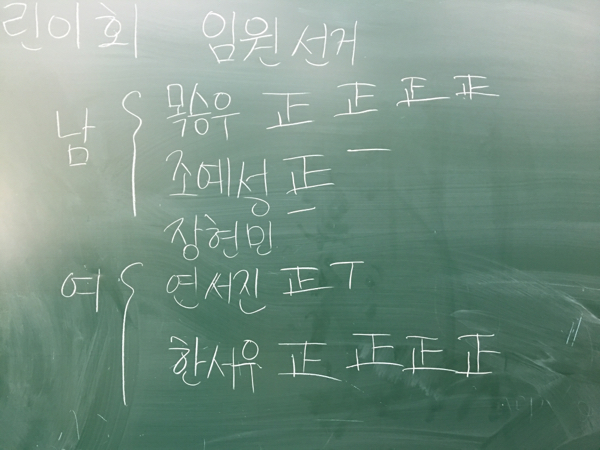 린이회 임원선거
남 목승우 正 正 正 正
조예성 正 一
장현민 一
여 연서진 正 丅
한서우 正 正 正 正